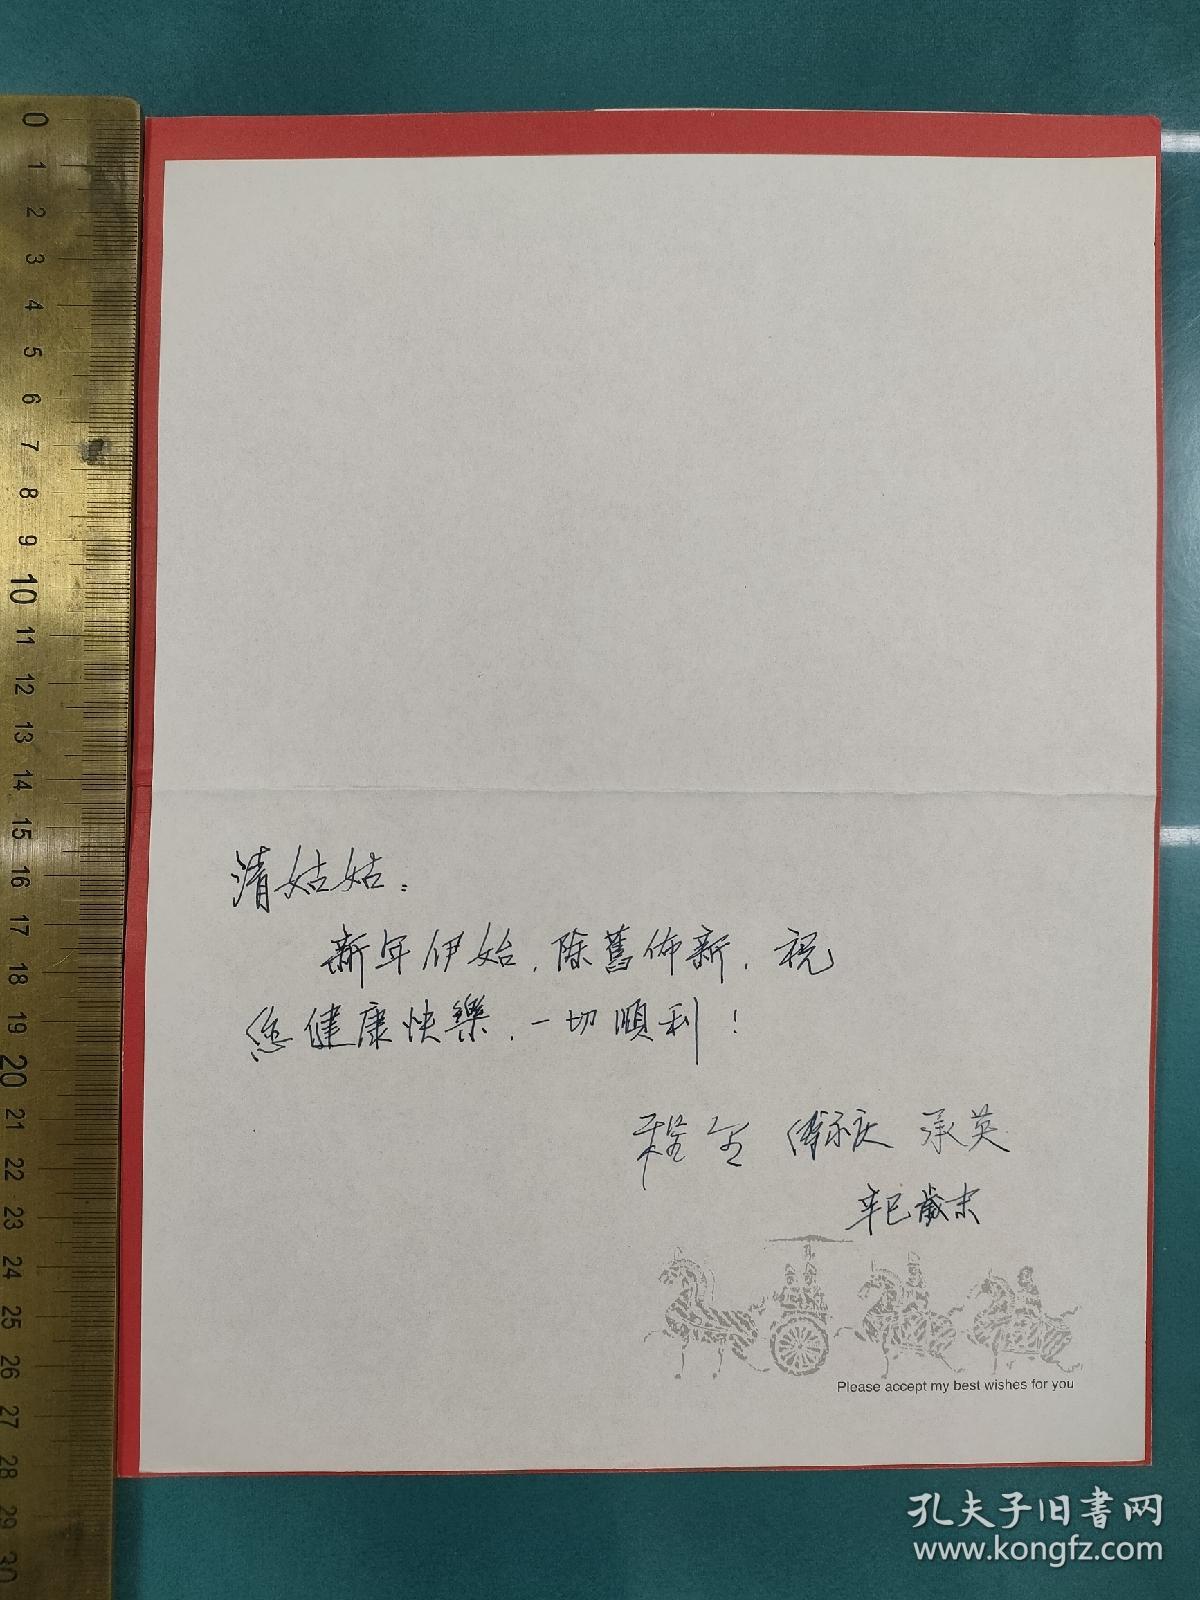 清姑姑：
新年伊始，除舊佈新，祝
您健康快樂，一切順利！
承英
辛巳歲末
Please accept my best wishes for you
孔夫子旧書网
www.kongfz.com
0
1
2
3
4
5
6
7
8
9
10
11
12
13
14
15
16
17
18
19
20
21
22
23
24
25
26
27
28
29
30